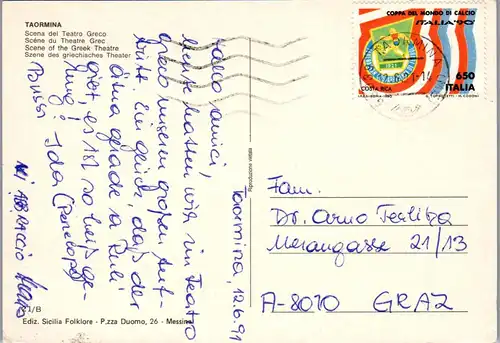 TAORMINA
Scena del Teatro Greco
Scène du Theatre Grec
Scene of the Greek Theatre
Szene des griechisches Theater
COPPA DEL MONDO DI CALCIO
ITALIA '90
COSTA RICA
650
ITALIA
Taormina, 12.6.91
amici,
Heute hatten wir im Teatro
Greco unseren großen Auf-
tritt. Ein Glück, daß der
Ätna grade a Ruh
gibt, es ist so heiß ge-
nug! Ida (Penelope)
Bussi
MI ABBRACCIO
Riproduzione vietata
Fam.
Dr. Arno
Merangasse 21/13
A-8010 GRAZ
/B
Ediz. Sicilia Folklore - P.zza Duomo, 26 - Messina